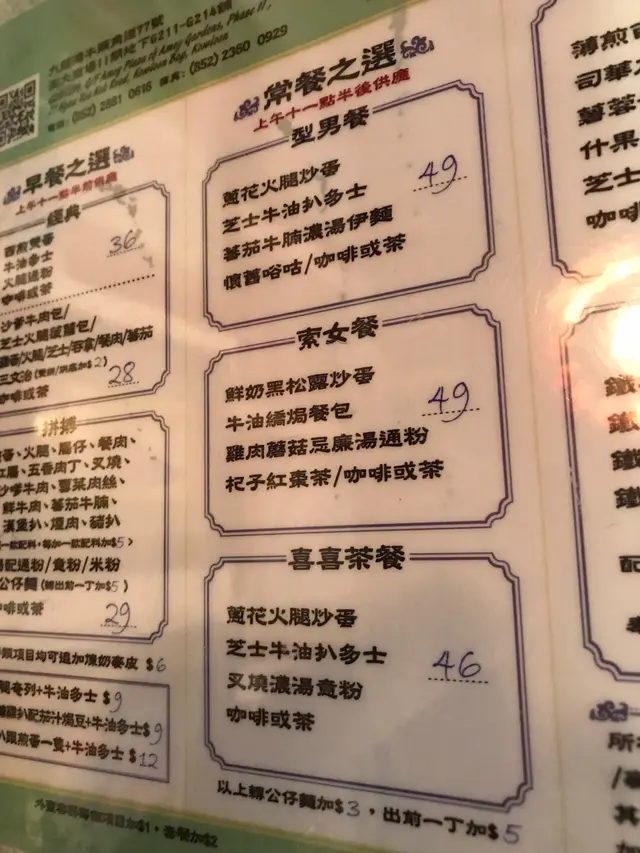 九龍灣牛頭角道77號
淘大商場11期地下G211-G214舖
(852) 2881 0616
(852) 2360 0929
早餐之選
上午十一點半前供應
經典
西煎雙蛋
牛油多士
火腿通粉
咖啡或茶
36
沙爹牛肉包/
芝士火腿菠蘿包/
/火腿/芝士/吞拿/餐肉/蕃茄
三文治
咖啡或茶
28
拼搏
、火腿、腸仔、餐肉、
紅腸、五香肉丁、叉燒、
沙爹牛肉、薯菜肉絲、
鮮牛肉、蕃茄牛腩、
漢堡扒、煙肉、豬扒
一款配料，每加一款配料加$5
湯配通粉/意粉/米粉
公仔麵(轉出前一丁加$5)
咖啡或茶
29
項目均可追加凍奶麥皮 $6
奄列+牛油多士 $9
雞扒配茄汁焗豆+牛油多士$9
煎蛋一隻+牛油多士 $12
常餐之選
上午十一點半後供應
型男餐
蔥花火腿炒蛋
芝士牛油扒多士
蕃茄牛腩濃湯伊麵
懷舊唂咕/咖啡或茶
49
索女餐
鮮奶黑松露炒蛋
牛油繑焗餐包
雞肉蘑菇忌廉湯通粉
杞子紅棗茶/咖啡或茶
49
喜喜茶餐
蔥花火腿炒蛋
芝士牛油扒多士
叉燒濃湯意粉
咖啡或茶
46
以上轉公仔麵加$3，出前一丁加$5
薄煎
司華
薯蓉
什果
芝士
咖啡
鐵
鐵
鐵
鐵
配
所
其